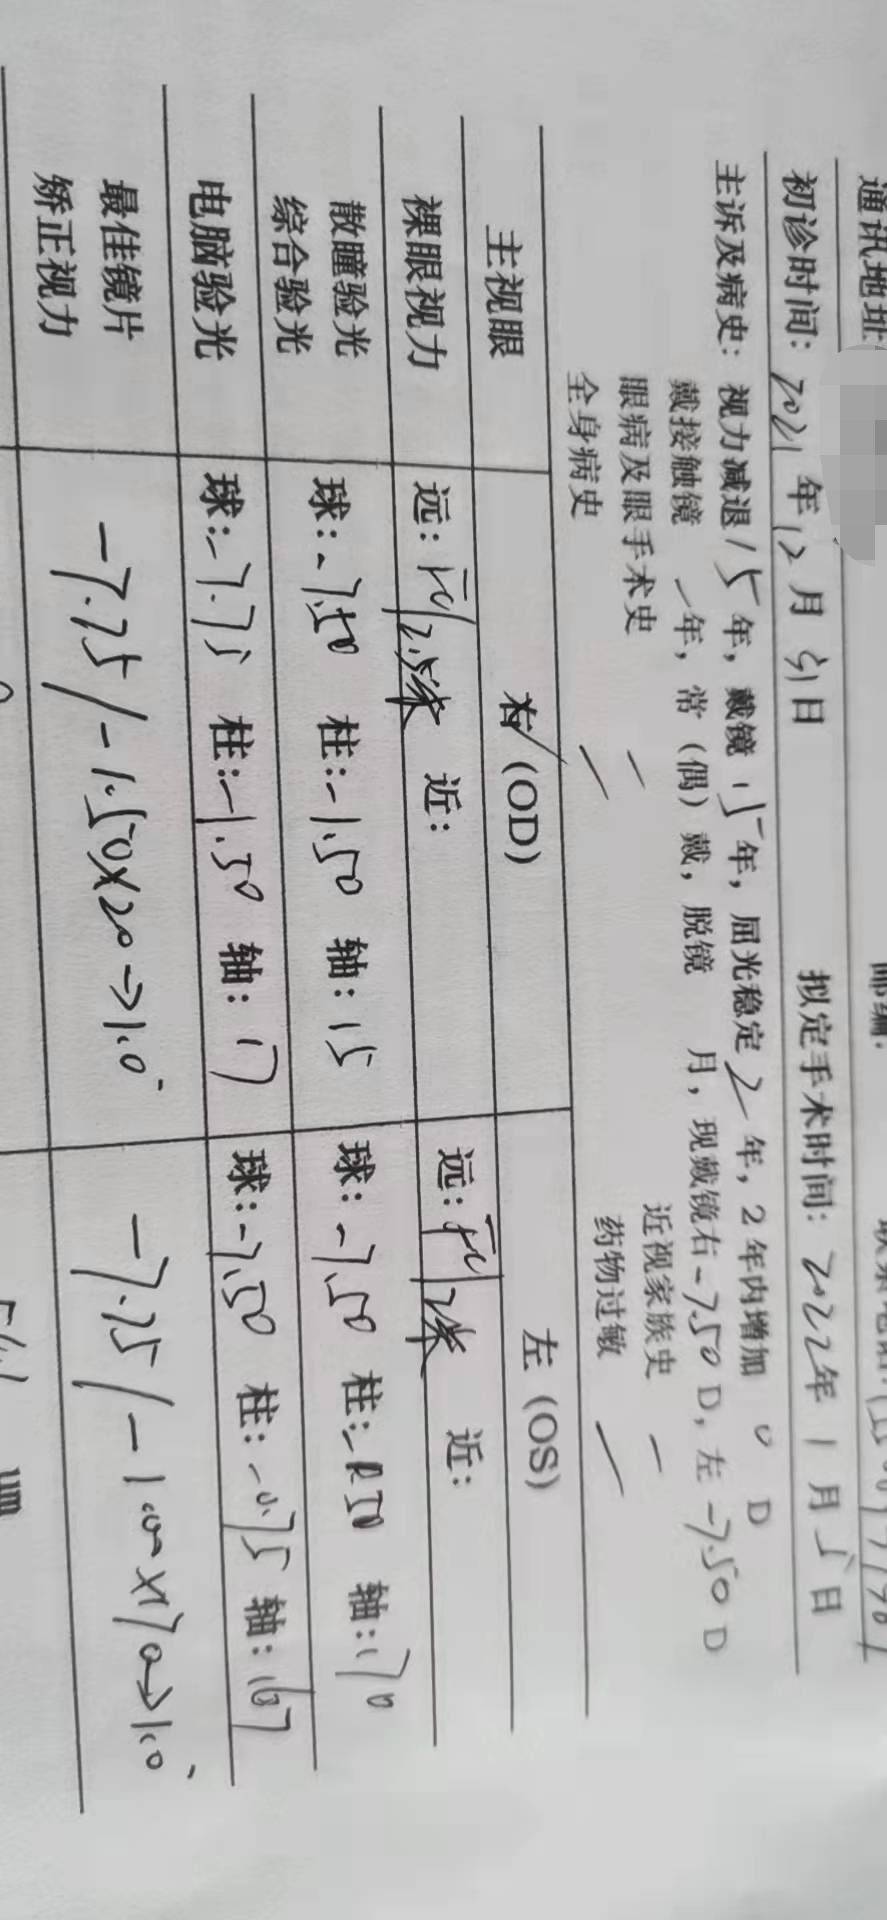 通讯地址 邮编:
初诊时间: 2021年12月31日 拟定手术时间: 2022年1月5日
主诉及病史: 视力减退15年, 戴镜15年, 屈光稳定2年, 2年内增加0 D
戴接触镜 一年, 常(偶)戴, 脱镜 月, 现戴镜右-7.50D, 左-7.50D
眼病及眼手术史 / 近视家族史 —
全身病史 / 药物过敏 /
主视眼 右√(OD) 左(OS)
裸眼视力 远: /2.5米 近: 远: /2米 近:
散瞳验光
综合验光 球:-7.50 柱:-1.50 轴:15 球:-7.50 柱: 轴:170
电脑验光 球:-7.75 柱:-1.50 轴:17 球:-7.50 柱:-0.75 轴:167
最佳镜片
矫正视力 -7.25/-1.50×20→1.0⁻ -7.25/-1.00×170→1.0⁻
um